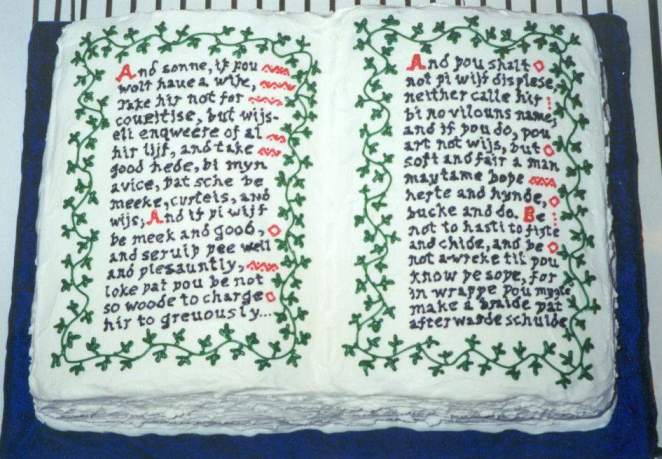 And sonne, if þou
wolt haue a wife,
take hir not for
coueitise, but wijs-
eli enqweere of al
hir lijf, and take
good hede, bi myn
avice, þat sche be
meeke, curteis, and
wijs; And if þi wijf
be meek and good,
and serviþ þee well
and plesauntly,
loke þat þou be not
so woode to charge
hir to greuously...
And þou shalt
not þi wijf displese,
neither calle hir
bi no vilouns name,
and if þou do, þou
art not wijs, but
soft and fair a man
may tame boþe
herte and hynde,
bucke and do. Be
not to hasti to fiȝte
and chide, and be
not a-wreke til þou
know þe soþe, for
in wrappe þou myȝte
make a braide þat
afterwarde schulde